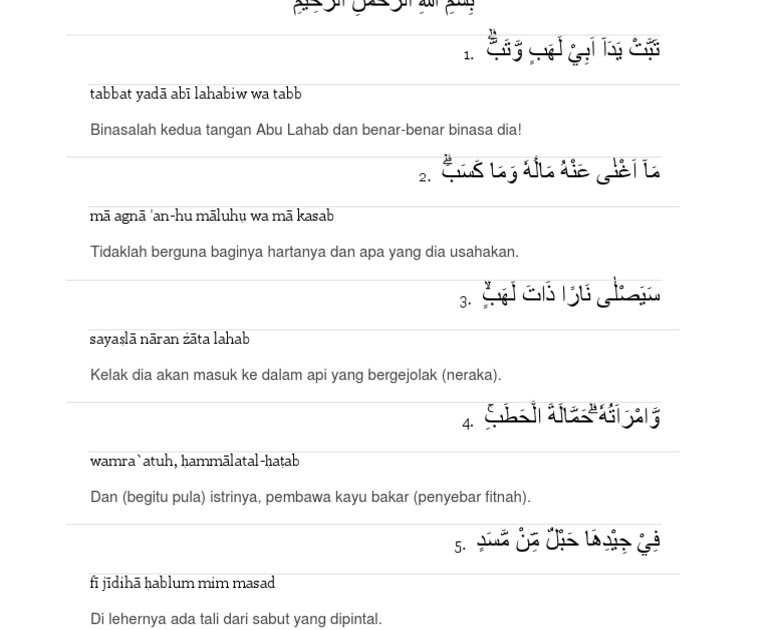 بِسْمِ اللّٰهِ الرَّحْمٰنِ الرَّحِيْمِ
1. تَبَّتْ يَدَآ اَبِيْ لَهَبٍ وَّتَبَّۗ
tabbat yadā abī lahabiw wa tabb
Binasalah kedua tangan Abu Lahab dan benar-benar binasa dia!
2. مَآ اَغْنٰى عَنْهُ مَالُهٗ وَمَا كَسَبَۗ
mā agnā 'an-hu māluhụ wa mā kasab
Tidaklah berguna baginya hartanya dan apa yang dia usahakan.
3. سَيَصْلٰى نَارًا ذَاتَ لَهَبٍۙ
sayaṣlā nāran żāta lahab
Kelak dia akan masuk ke dalam api yang bergejolak (neraka).
4. وَّامْرَاَتُهٗۗ حَمَّالَةَ الْحَطَبِۚ
wamra`atuh, ḥammālatal-ḥaṭab
Dan (begitu pula) istrinya, pembawa kayu bakar (penyebar fitnah).
5. فِيْ جِيْدِهَا حَبْلٌ مِّنْ مَّسَدٍ
fī jīdihā ḥablum mim masad
Di lehernya ada tali dari sabut yang dipintal.